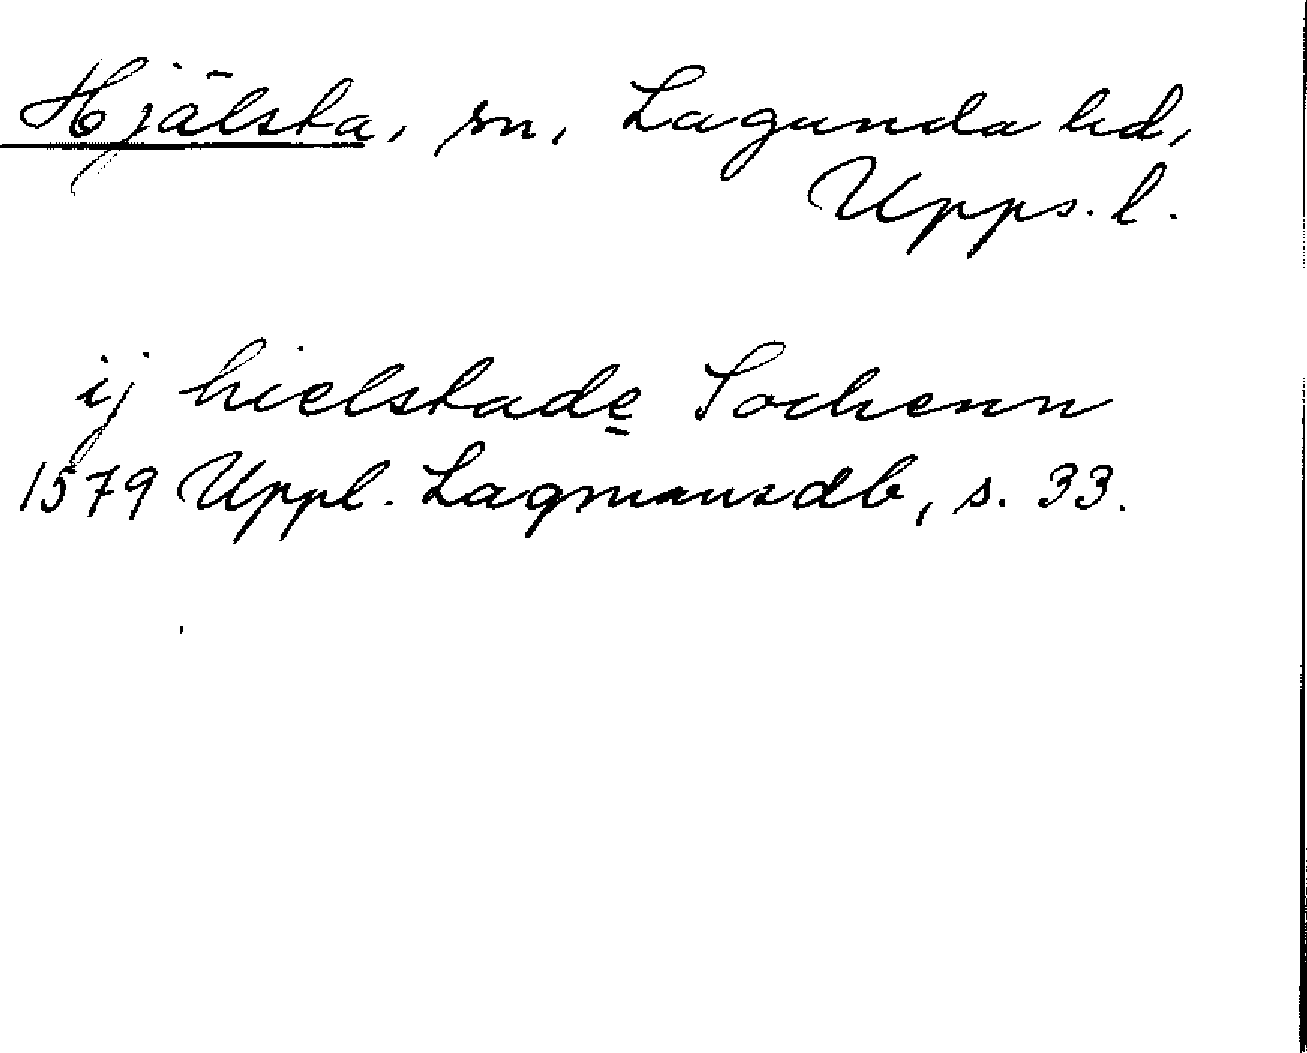 Hjälsta, sn, Lagunda hd,
Upps. l.
ij hielstade Sochenn
1579 Uppl. Lagmansdb, s. 33.